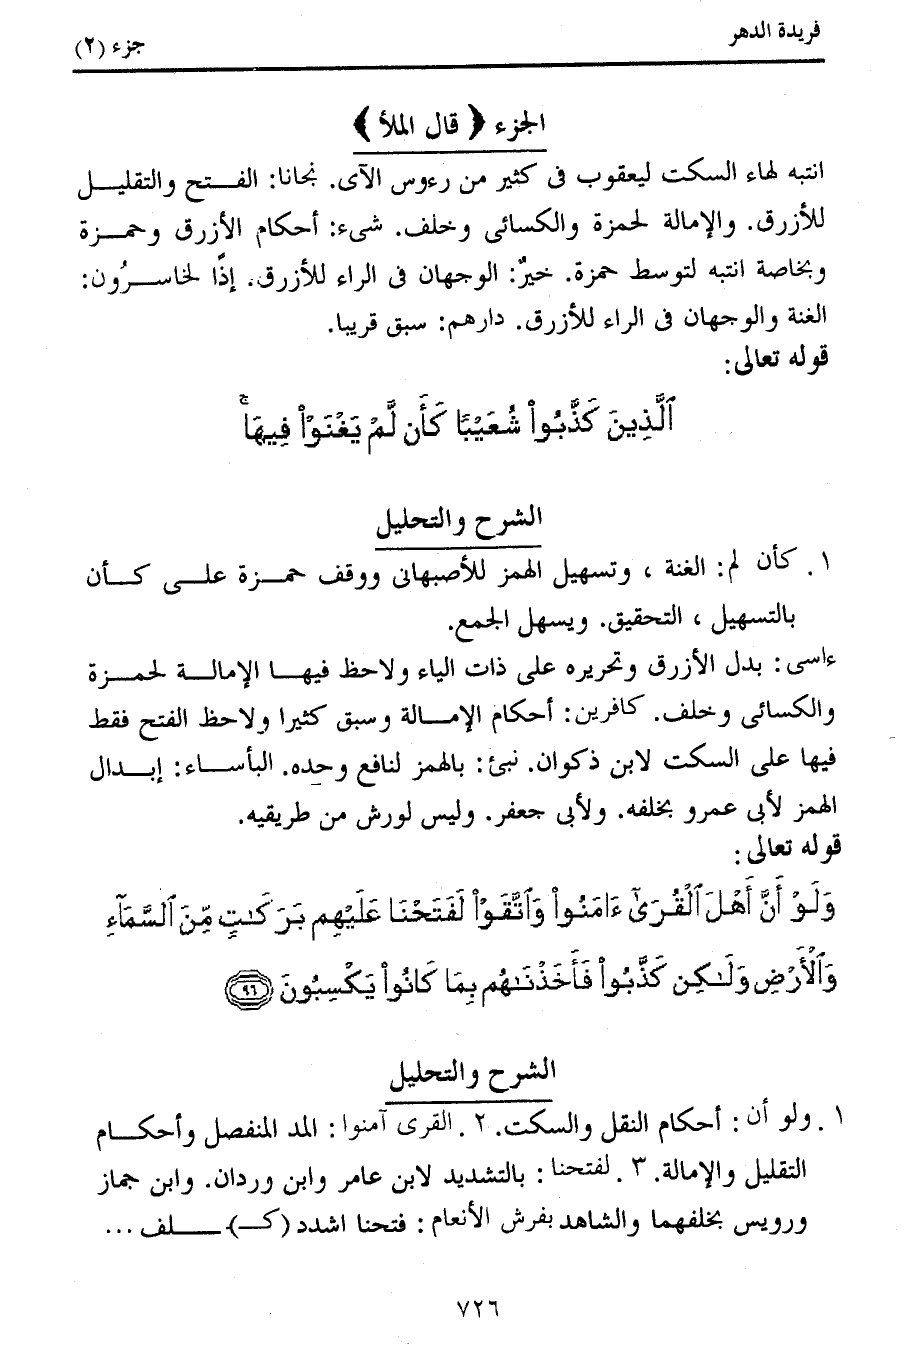 فريدة الدهر
جزء (٢)
الجزء ﴿ قال الملأ ﴾
انتبه لهاء السكت ليعقوب فى كثير من رءوس الآى. نجانا: الفـــتح والتقليـــل
للأزرق. والإمالة لحمزة والكسائى وخلف. شىء: أحكام الأزرق وحمـــزة
وبخاصة انتبه لتوسط حمزة. خيرٌ: الوجهان فى الراء للأزرق. إذًا لخاســـرُون:
الغنة والوجهان فى الراء للأزرق. دارهم: سبق قريبا.
قوله تعالى:
ٱلَّذِينَ كَذَّبُواْ شُعَيْبًا كَأَن لَّمْ يَغْنَوْاْ فِيهَاۚ
الشرح والتحليل
١. كأن لم: الغنة ، وتسهيل الهمز للأصبهانى ووقف حمـــزة علـــى كـــأن
بالتسهيل ، التحقيق. ويسهل الجمع.
ءاسى: بدل الأزرق وتحريره على ذات الياء ولاحظ فيهـــا الإمالـــة لحمـــزة
والكسائى وخلف. كافرين: أحكام الإمـــالة وسبق كثيرا ولاحظ الفتح فقط
فيها على السكت لابن ذكوان. نبئ: بالهمز لنافع وحده. البأســـاء: إبـــدال
الهمز لأبى عمرو بخلفه. ولأبى جعفر. وليس لورش من طريقيه.
قوله تعالى:
وَلَوْ أَنَّ أَهْلَ ٱلْقُرَىٰٓ ءَامَنُواْ وَٱتَّقَوْاْ لَفَتَحْنَا عَلَيْهِم بَرَكَٰتٍ مِّنَ ٱلسَّمَآءِ
وَٱلْأَرْضِ وَلَٰكِن كَذَّبُواْ فَأَخَذْنَٰهُم بِمَا كَانُواْ يَكْسِبُونَ ٩٦
الشرح والتحليل
١. ولو أن: أحكام النقل والسكت. ٢. القرى آمنوا: المد المنفصل وأحكـــام
التقليل والإمالة. ٣. لفتحنا: بالتشديد لابن عامر وابن وردان. وابن جماز
ورويس بخلفهما والشاهد بفرش الأنعام: فتحنا اشدد (كـ)ـــلف ...
٧٢٦